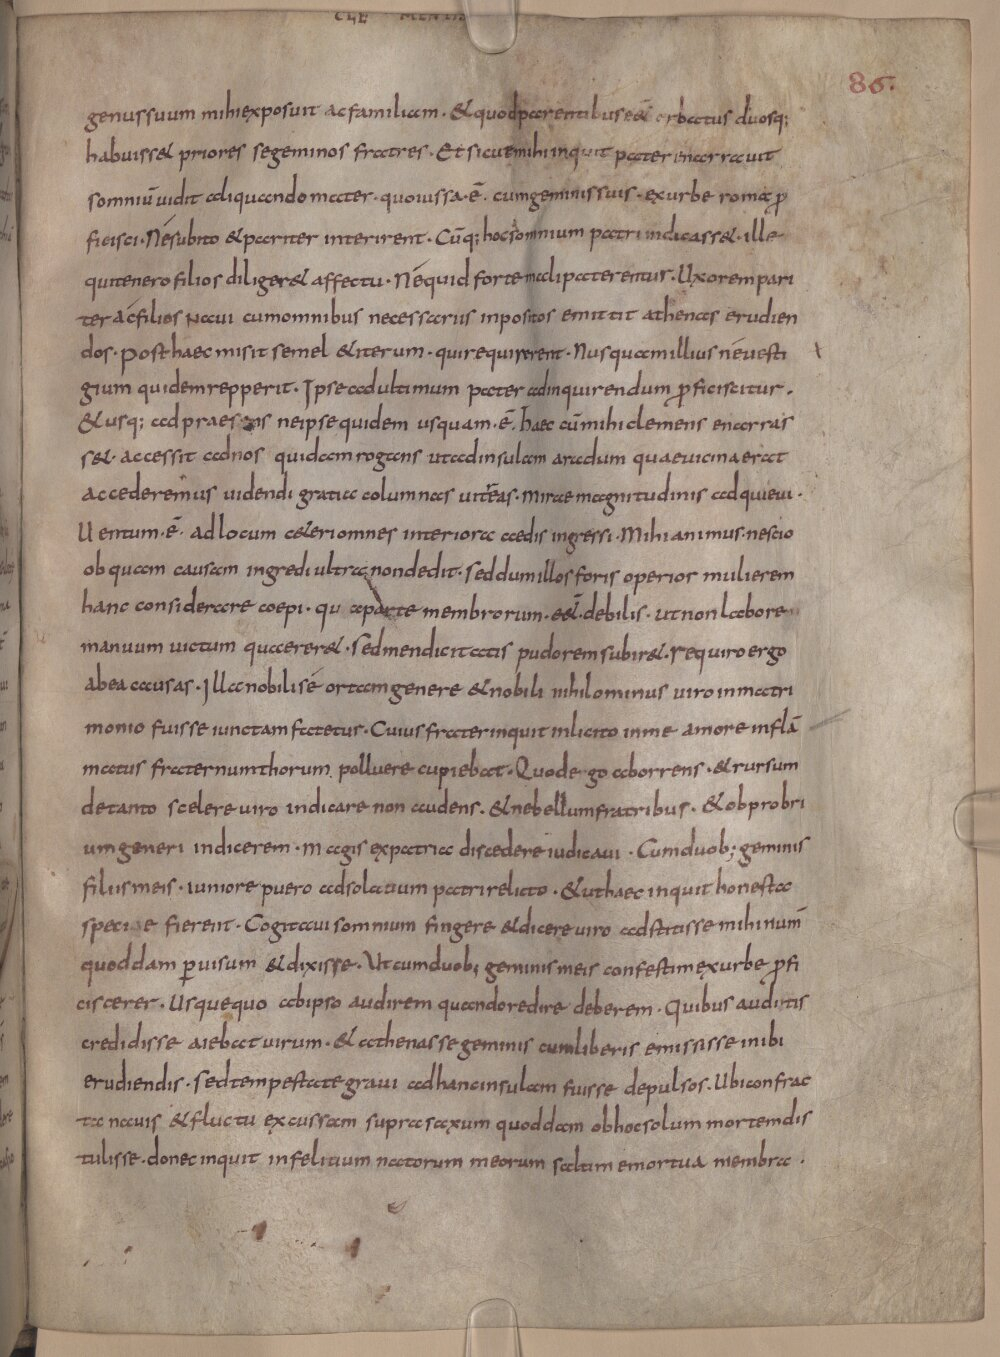 CLE MENTIS
86.
genus suum mihi exposuit ac familiam · & quod parentibus eēt orbatus duosq;
habuisset priores se geminos fratres · Et sicut mihi inquit pater enarrauit
somniū uidit aliquando mater · quo iussa · ē · cum geminis suis · ex urbe roma p
ficisci · Ne subito & pariter interirent · Cūq; hoc somnium patri indicasset · ille
qui tenero filios diligeret affectu · Ne quid forte mali paterentur · Uxorem pari
ter ac filios naui cum omnibus necessariis inpositos emittit athenas erudien
dos · Post haec misit semel & iterum · qui requirerent · Nusquam illius ne uesti
gium quidem repperit · Ipse ad ultimum pater ad inquirendum pficiscitur ·
& usq; ad praesens ne ipse quidem usquam · ē · haec cū mihi clemens enarras
set · accessit ad nos quidam rogans ut ad insulam aradum quae uicina erat
accederemus uidendi gratia columnas uiteas · Mirae magnitudinis adquieui ·
Uentum · ē · ad locum celeri omnes interiora aedis ingressi · Mihi animus nescio
ob quam causam ingredi ultra non dedit · sed dum illos foris operior mulierem
hanc considerare coepi · qu a parte membrorum · eēt · debilis · ut non labore
manuum uictum quaereret · sed mendicitatis pudorem subiret · requiro ergo
ab ea causas · Illa nobili se ortam genere & nobili nihilominus uiro in matri
monio fuisse iunctam fatetur · Cuius frater inquit inlicito in me amore inflā
matus fraternum thorum polluere cupiebat · Quod ergo aborrens · & rursum
de tanto scelere uiro indicare non audens · & ne bellum fratribus · & obprobri
um generi indicerem · magis ex patria discedere iudicaui · Cum duob; geminis
filiis meis · iuniore puero ad solatium patri relicto · & ut haec inquit honesta
specie fierent · Cogitaui somnium fingere & dicere uiro adstitisse mihi num̄
quoddam p uisum & dixisse · Ut cum duob; geminis meis confestim ex urbe pfi
ciscerer · Usque quo ab ipso audirem quando redire deberem · Quibus auditis
credidisse aiebat uirum · & athenas se geminis cum liberis emisisse inibi
erudiendis · sed tempestate graui ad hanc insulam fuisse depulsos · Ubi confrac
ta nauis & fluctu excussam supra saxum quoddam ob hoc solum mortem dis
tulisse · donec inquit infelitium natorum meorum saltim emortua membra ·